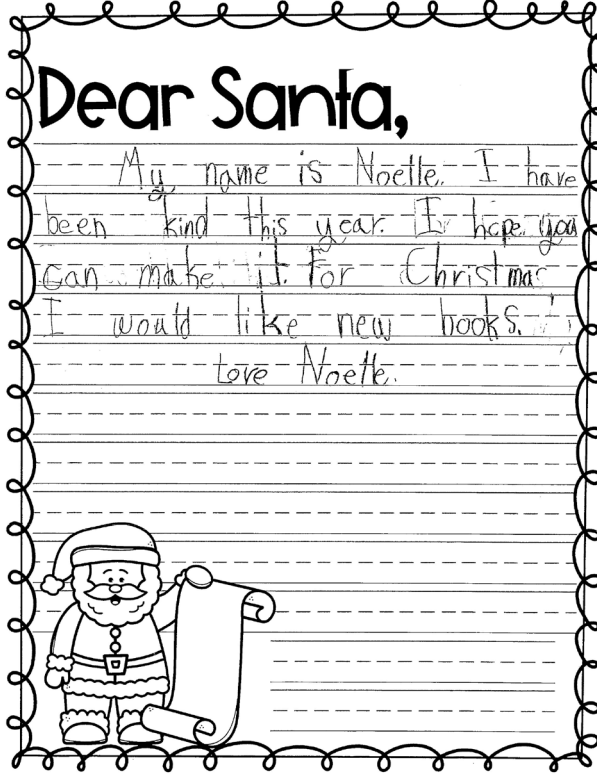 Dear Santa,
My name is Noelle. I have
been kind this year. I hope you
can make it. For Christmas
I would like new books.
Love Noelle.